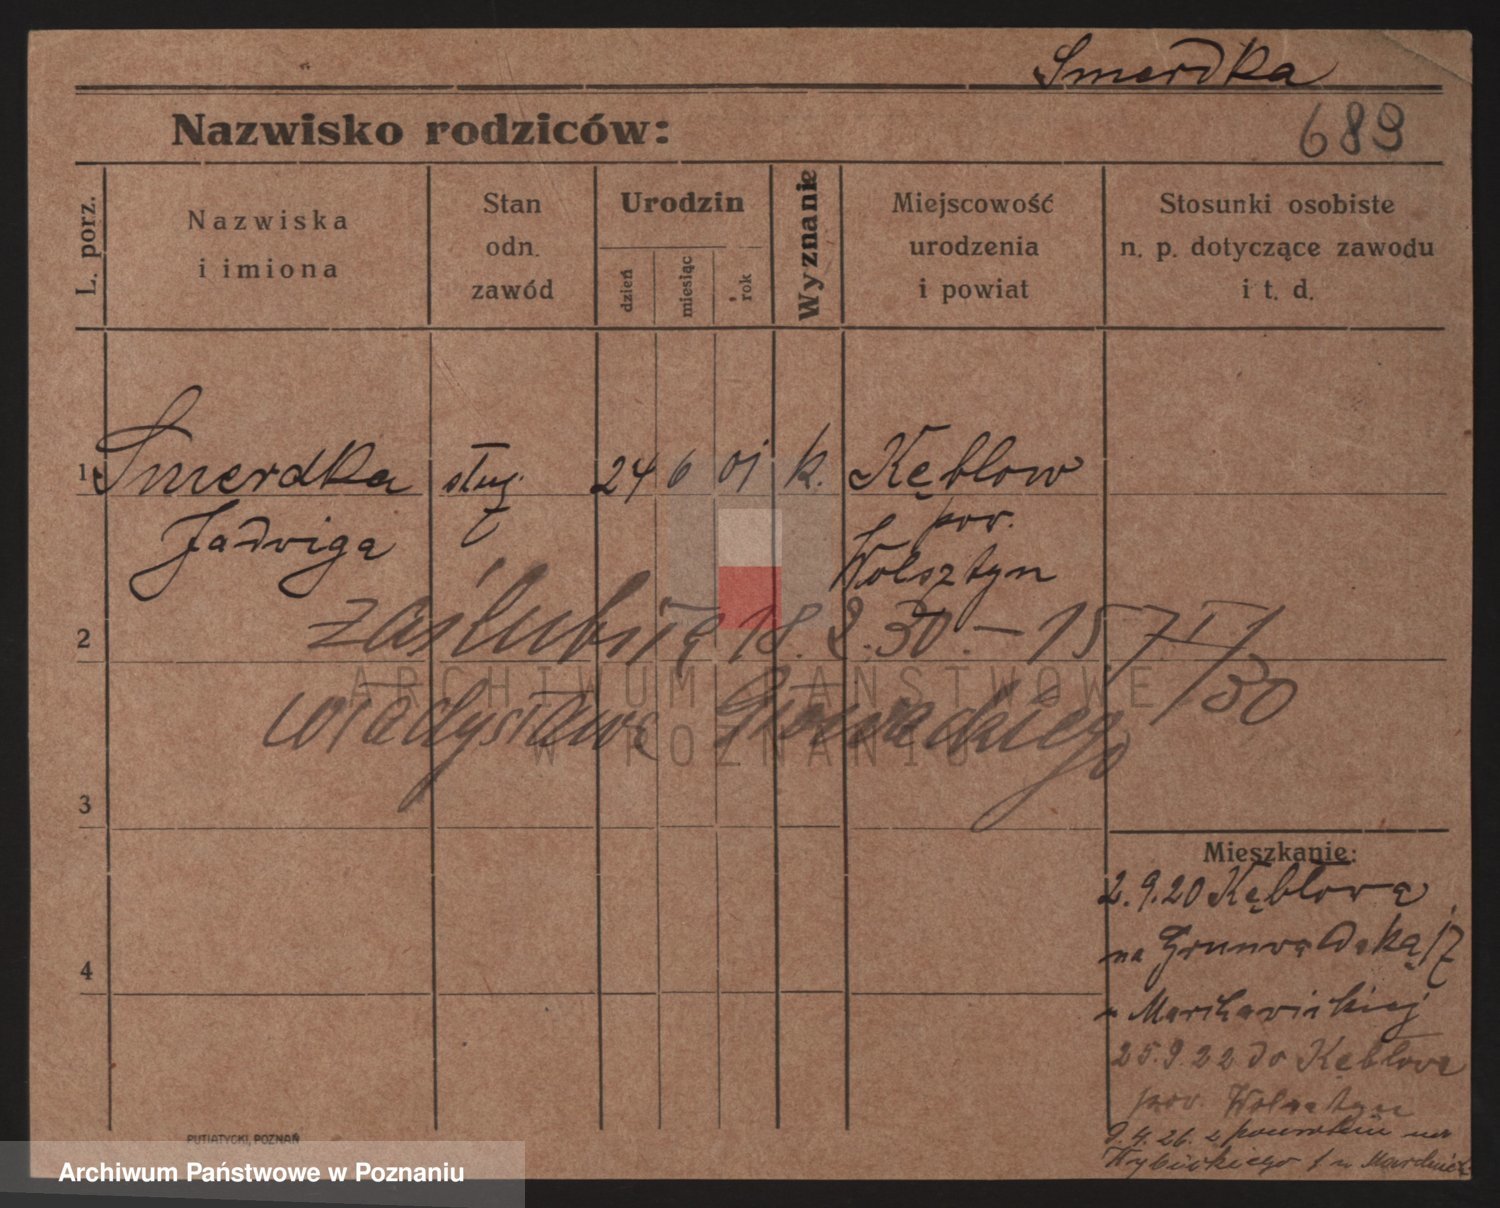 Smerdka
Nazwisko rodziców:
689
L. porz.
Nazwiska
i imiona
Stan
odn.
zawód
Urodzin
dzień
miesiąc
rok
Wyznanie
Miejscowość
urodzenia
i powiat
Stosunki osobiste
n. p. dotyczące zawodu
i t. d.
1 Smerdka służ. 24 6 01 k. Kębłow
Jadwiga pow.
Wolsztyn
2 zaślubiła 18.2.30. – 157
Władysława
3
Mieszkanie:
2.9.20 Kębłowa
na Grunwaldska 17
u
25.9.22 do Kębłowa
pow. Wolsztyn
4
9.4.26. z powrotem na
Wybickiego 1 u
PUTIATYCKI, POZNAŃ
ARCHIWUM PAŃSTWOWE
W POZNANIU
Archiwum Państwowe w Poznaniu